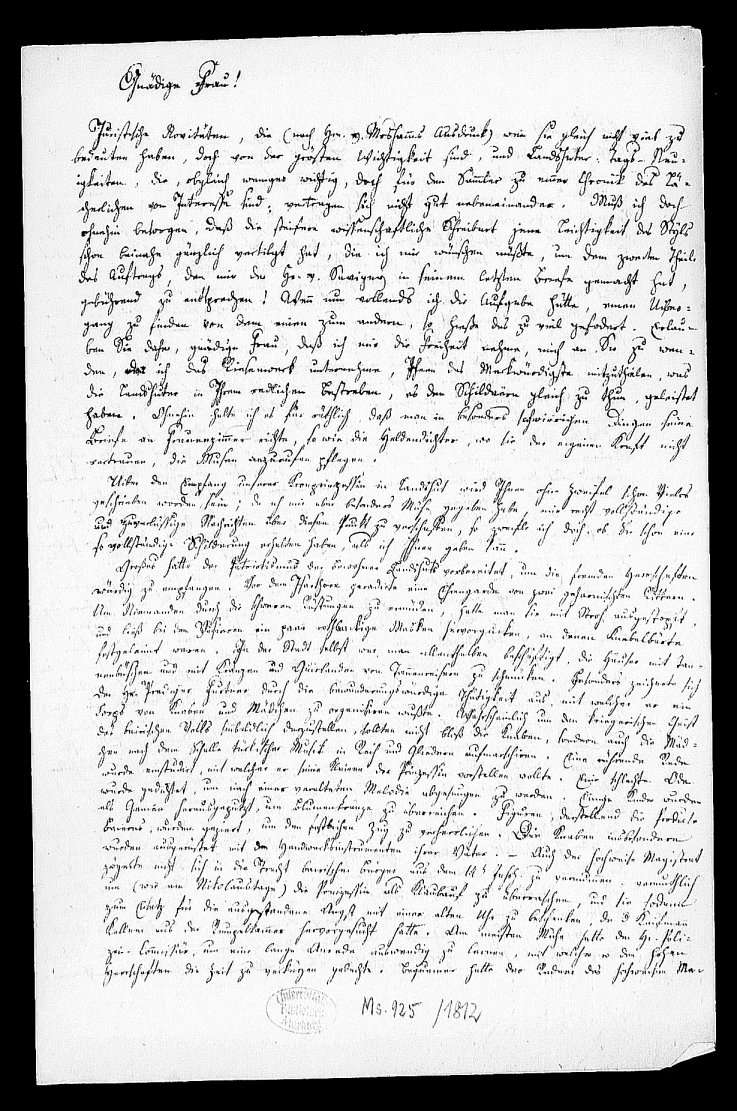 Gnädige Frau!
Juristische Novitäten, die (nach Hrn. v. Moshamms Ausdruck) wenn sie gleich nicht viel zu
bedeuten haben, doch von der grösten Wichtigkeit sind, und Landshuter-Tags-Neu-
igkeiten, die, obgleich weniger wichtig, doch für den Samler zu einer Chronik des Lä-
cherlichen von Interesse sind, vertragen sich nicht gut nebeneinander. Muß ich doch
ohnehin besorgen, daß die steifere wissenschaftliche Schreibart jene Leichtigkeit des Styls
schon beinahe gänzlich vertilgt hat, die ich mir wünschen müßte, um dem zweiten Theil
des Auftrags, den mir der Hr. v. Savigny in seinem letzten Briefe gemacht hat,
gebührend zu entsprechen! Wenn nun vollends ich die Aufgabe hätte, einen Ueber-
gang zu finden von dem einen zum andern, so hieße das zu viel gefodert. Erlau-
ben Sie daher, gnädige Frau, daß ich mir die Freiheit nehme, mich an Sie zu wen-
den, da ich das Riesenwerk unternehme, Ihnen das Merkwürdigste mitzutheilen, was
die Landshuter in Ihrem redlichen Bestreben, es den Schildaern gleich zu thun, geleistet
haben. Ohnehin halte ich es für räthlich daß man in besonders schwierigen Dingen seine
Briefe an Frauenzimmer richte, so wie die Heldendichter, wo sie der eigenen Kraft nicht
vertrauen, die Musen anzurufen pflegen.
Ueber den Empfang unserer Kronprinzessin in Landshut wird Ihnen ohne Zweifel schon Vieles
geschrieben worden sein; da ich mir aber besonders Mühe gegeben habe, mir recht vollständige
und zuverlässige Nachrichten über diesen Punkt zu verschaffen, so zweifle ich doch, ob Sie schon eine
so vollständige Schilderung erhalten haben, als ich Ihnen geben kann.
Großes hatte der Patriotismus der Bewohner Landshuts vorbereitet, um die fremden Herrschaften
würdig zu empfangen. Vor dem Isarthore paradirte eine Ehrengarde von zwei geharnischten Rittern.
Um Niemanden durch die schweren Rüstungen zu ermüden, hatte man sie mit Stroh ausgestopft,
und ließ bei den Visieren ein paar rothbackige Masken hervorgucken, an denen Knebelbärte
festgeleimt waren. In der Stadt selbst war man allenthalben beschäftigt, die Häuser mit Tan-
nenbüschen und mit Kränzen und Guirlanden von Tannenreisern zu schmücken. Besonders zeichnete sich
der Hr. Prediger Furtner durch die bewunderungswürdige Thätigkeit aus, mit welcher er ein
Corps von Knaben und Mädchen zu organisiren wußte. Wahrscheinlich um den kriegerischen Geist
des bairischen Volks sinbildlich darzustellen, sollten nicht bloß die Knaben, sondern auch die Mäd-
chen nach dem Schalle türkischer Musik in Reih und Gliedern aufmarschiren. Eine rührende Rede
wurde einstudirt, mit welcher er seine Kleinen der Prinzessin vorstellen wollte. Eine schlechte Ode
wurde gedichtet, um nach einer veralteten Melodie abgesungen zu werden. Einige Kinder wurden
als Genien herausgeputzt, um Blumenkränze zu überreichen. Figuren, darstellend die Produkte
Baierns, wurden geziert, um den festlichen Zug zu verherrlichen. Die Knaben insbesondere
wurden ausgerüstet mit den Handwerksinstrumenten ihrer Väter. — Auch der hochweise Magistrat
zögerte nicht, sich in die Tracht bairischer Bürger aus dem 14t Jahrh. zu vermumen, vermuthlich
um (wie am Nikolaustage) die Prinzessin als Klaubauf zu überraschen, und sie sodann
zum Ersatz für die ausgestandene Angst mit einer alten Uhr zu beschenken, die d Kaufman
aus der Rumpelkammer hervorgesucht hatte. Am meisten Mühe hatte der Hr. Poli-
zei-Commissär, um eine lange Anrede auswendig zu lernen, mit welcher er den hohen
Herrschaften die Zeit zu verkürzen gedachte. Bequemer hatte der Redner des hochweisen Ma-
Universitäts
Bibliothek
Marburg
Ms. 925 /1812